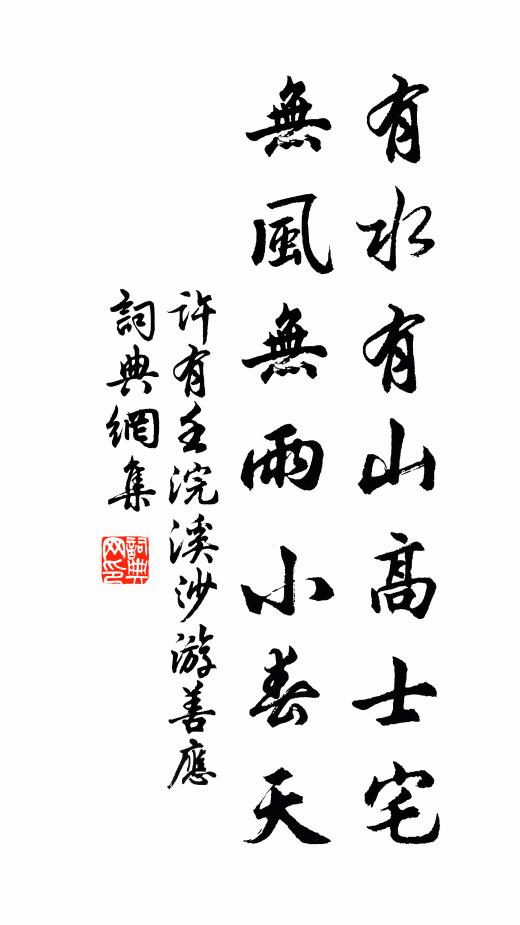 有水有山高士宅
無風無雨小春天
許有壬浣溪沙游善應
詞典網集
詞典网印